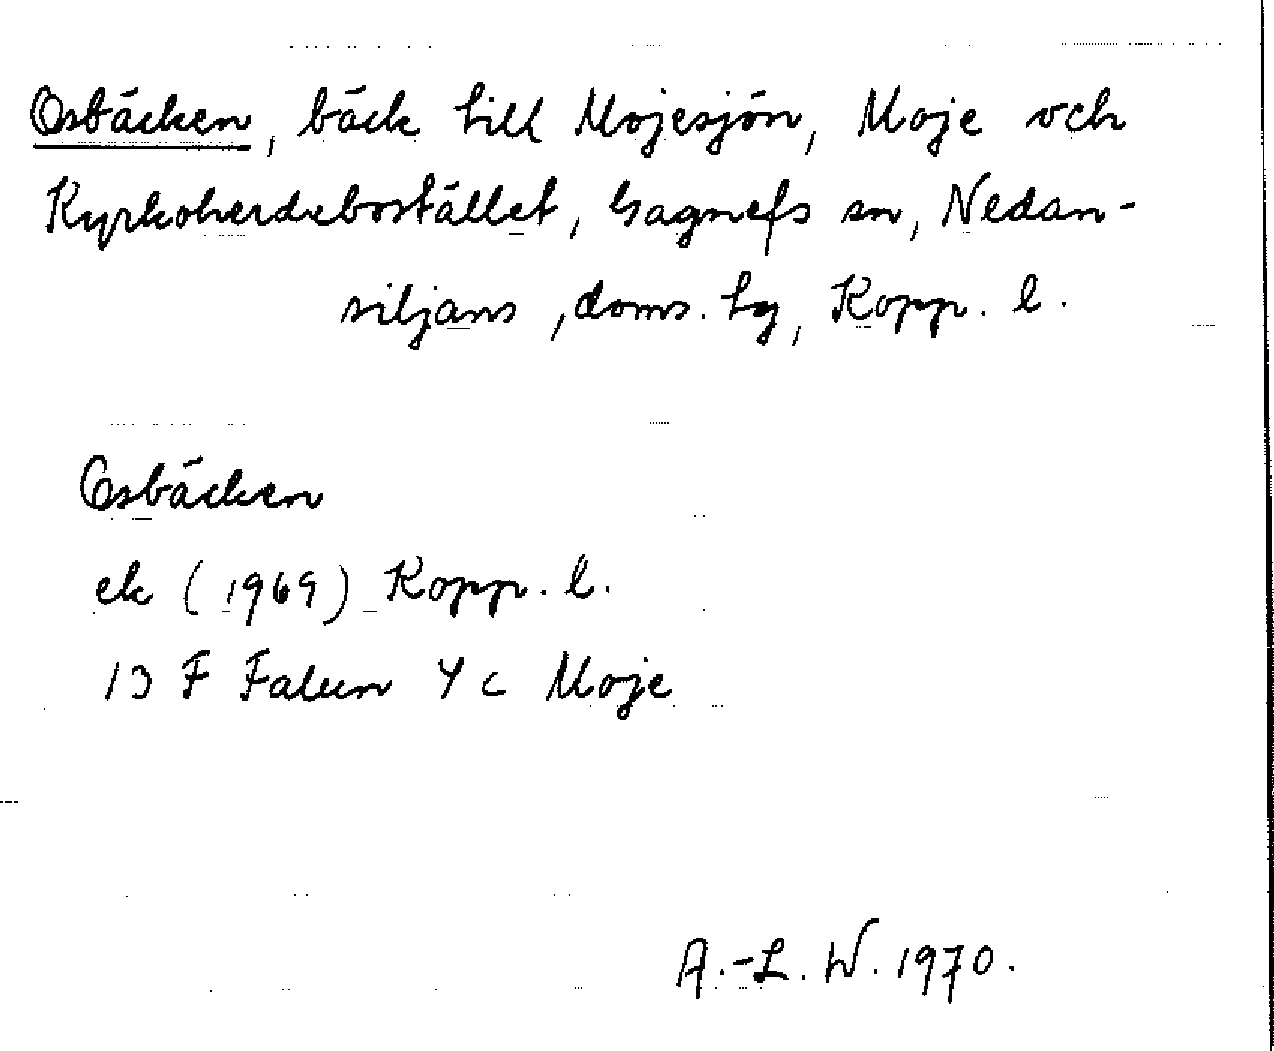 Osbäcken, bäck till Mojesjön, Moje och
Kyrkoherdebostället, Gagnefs sn, Nedan-
siljans, doms. hg, Kopp. l.
Osbäcken
ek (1969) Kopp. l.
13 F Falun 4 c Moje
A.-L. W. 1970.